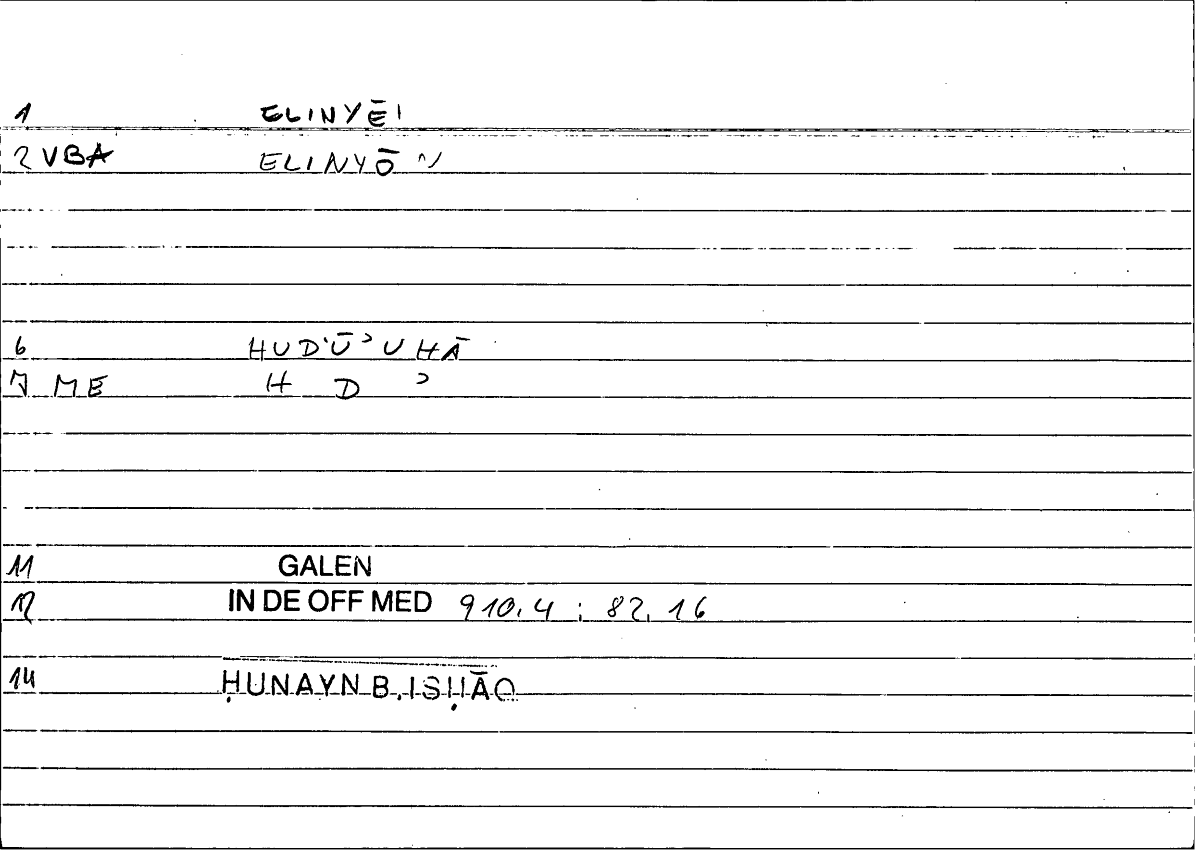 1 ELINYĒI
2 VBA ELINYŌ N
6 HUDŪʾUHĀ
7 ME H D ʾ
11 GALEN
12 IN DE OFF MED 910.4 ; 82.16
14 ḤUNAYN B. ISḤĀQ